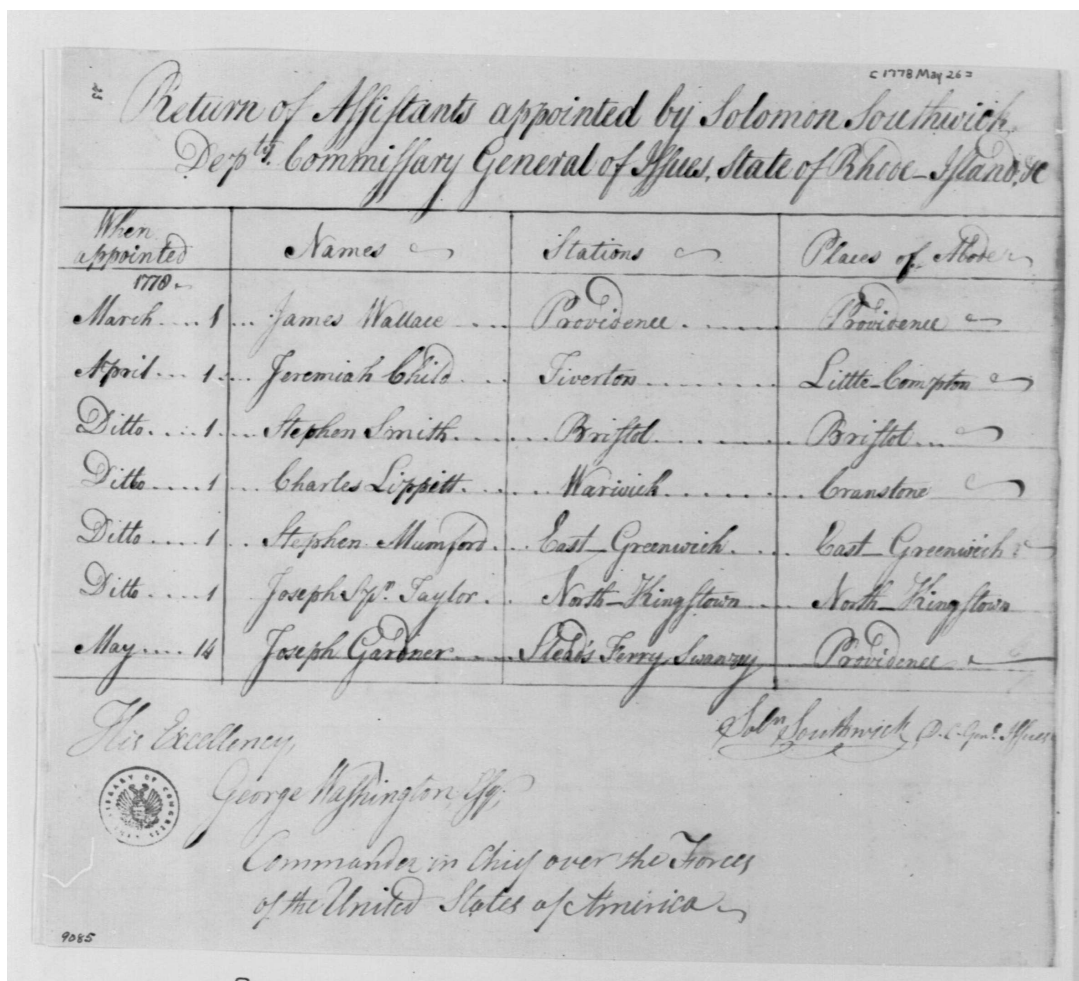 [1778 May 26]
Return of Assistants appointed by Solomon Southwick,
Depty. Commissary General of Issues, State of Rhode-Island, &c
When appointed Names Stations Places of Abode
1778
March .... 1 ... James Wallace .... Providence ........ Providence
April ... 1 .... Jeremiah Child .... Tiverton ......... Little-Compton
Ditto .... 1 .... Stephen Smith ....... Bristol ......... Bristol ...
Ditto .... 1 ... Charles Lippitt ...... Warwick ........ Cranstone
Ditto .... 1 ... Stephen Mumford ... East-Greenwich .... East-Greenwich
Ditto .... 1 Joseph Taylor .. North-Kingstown .... North-Kingstown
May .... 14 Joseph Gardner .... Slead's Ferry Swanzy Providence
Soln Southwick, D. C. Genl. Issues
His Excellency,
George Washington, Esq;
Commander in Chief over the Forces
of the United States of America
LIBRARY OF CONGRESS
9085